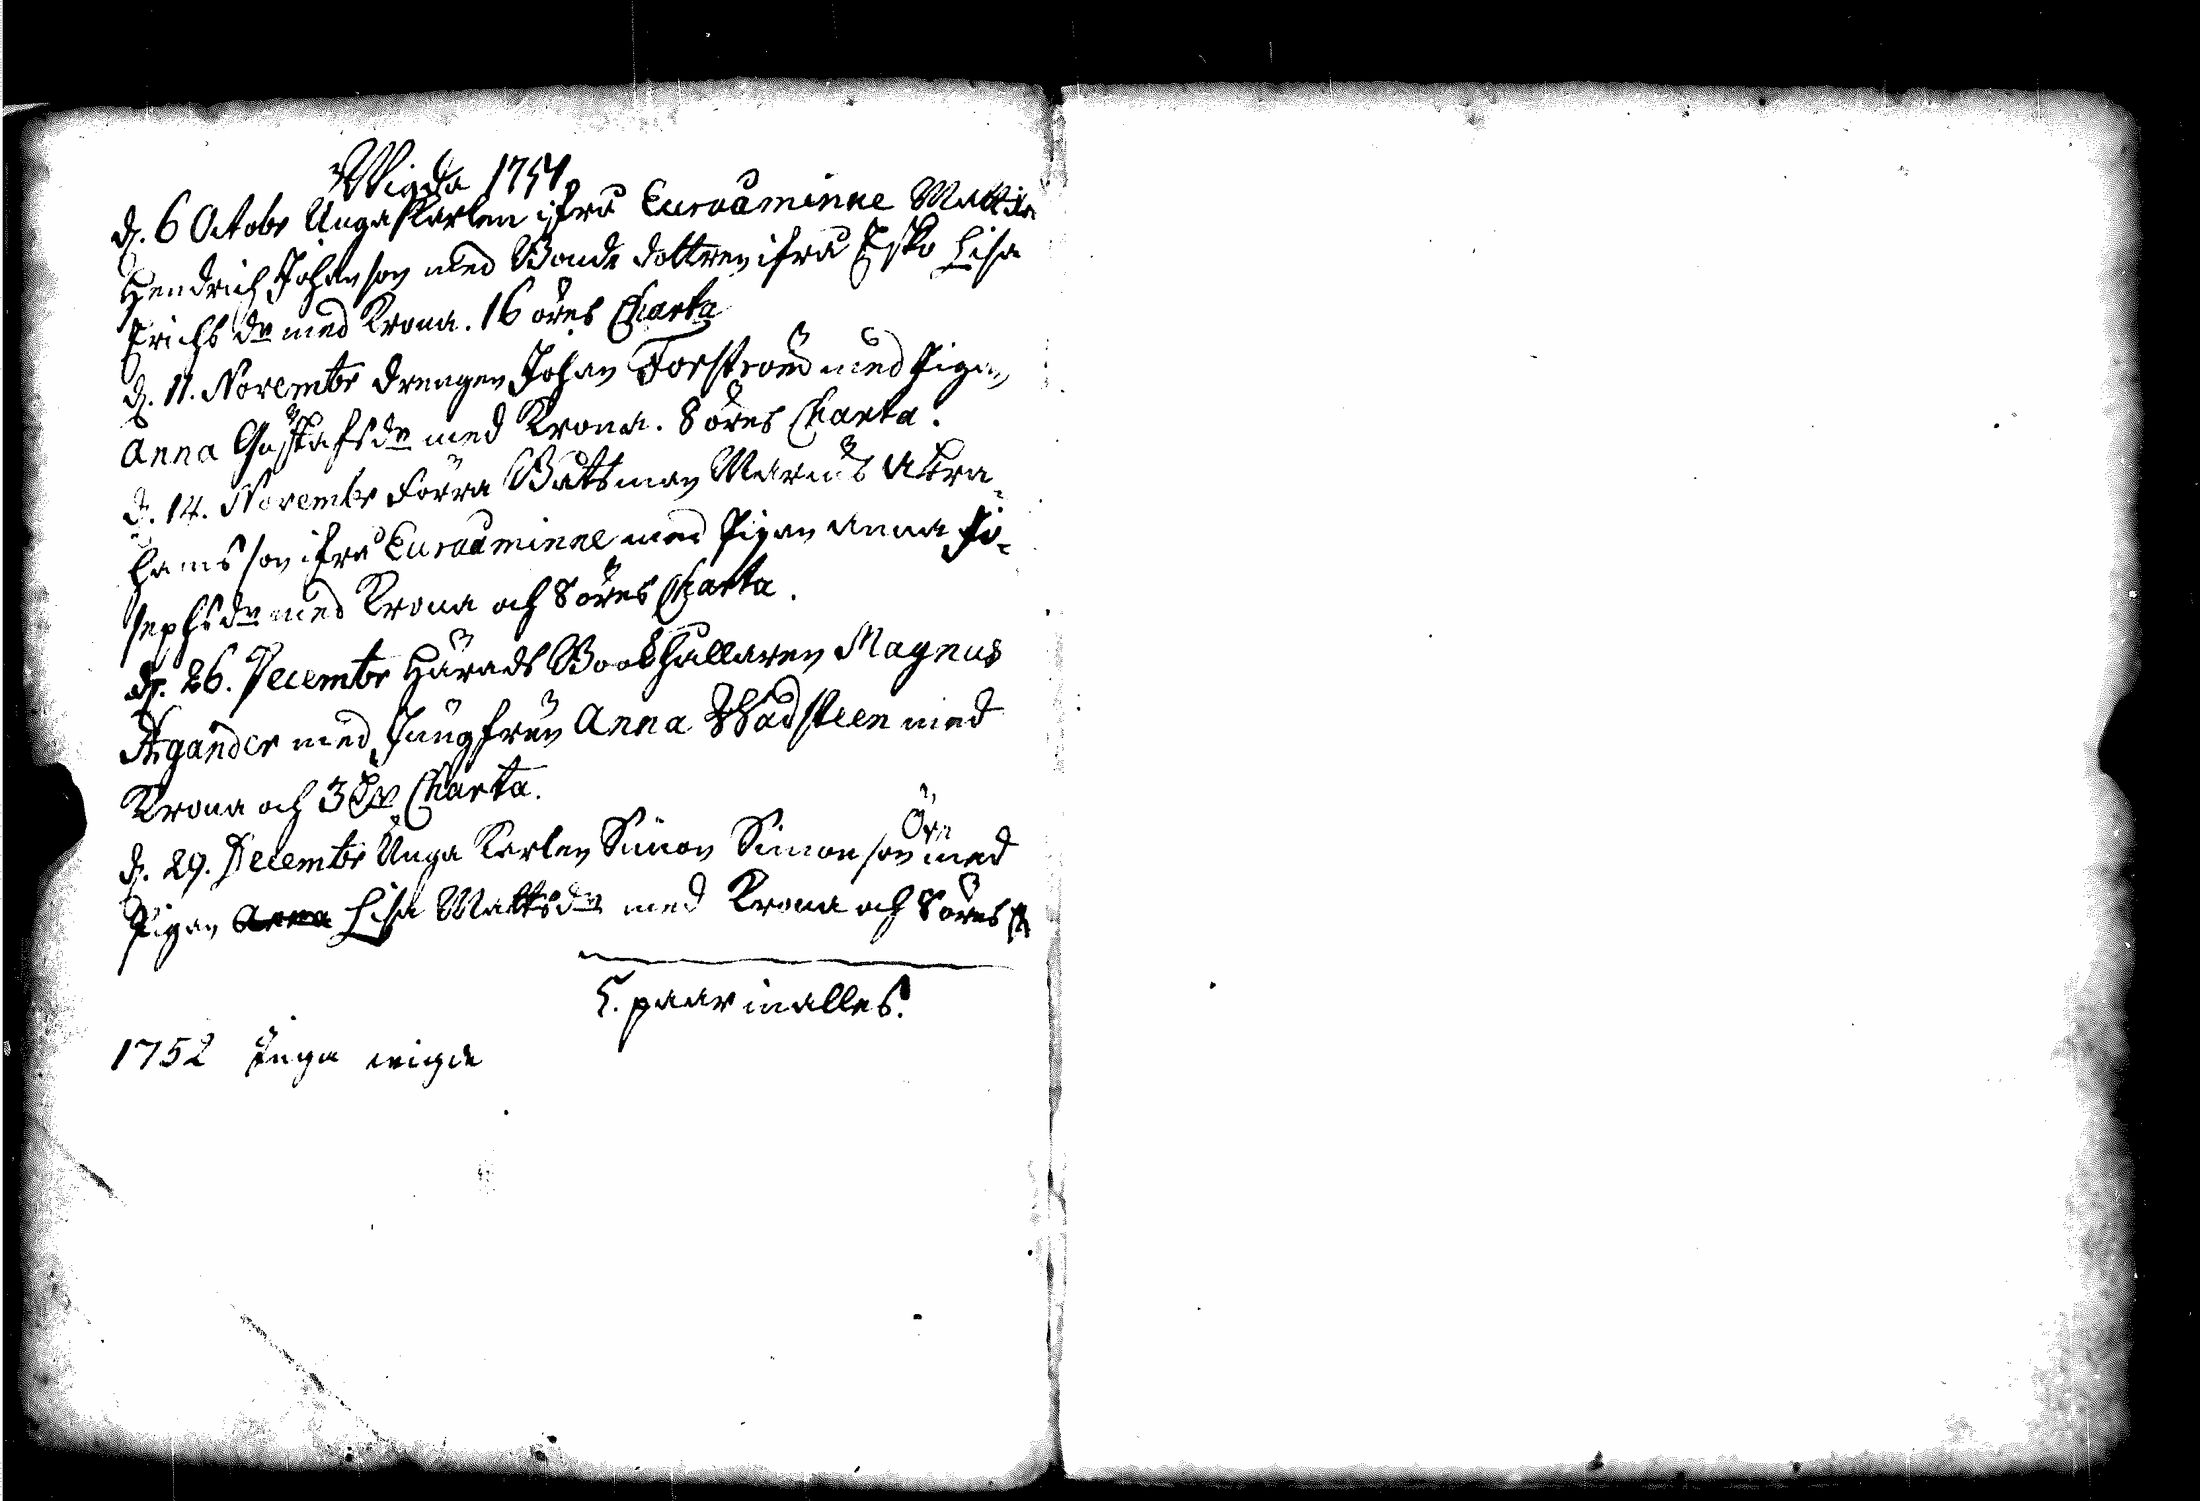 Wigda 1751.
d. 6 Octobr Ungakarlen ifrå Euraåminne Mattila
Hendrich Johanson med Bonde dottren ifrå Esko Lisa
Erichs dr med Krona. 16 öres Charta
d. 11. Novembr drengen Johan Forström med Pigan
Anna Gustafs dr med Krona. 8 öres Charta.
d. 14. Novembr Förra Båtsman Marcus Abra-
hamsson ifrå Euraåminne med Pigan Anna Jo-
sephs dr med Krona och 8 öres Charta.
d. 26. Decembr Härads Bookhållaren Magnus
Agander med Jungfrun Anna Wadsteen med
Krona och 3 Charta.
d. 29. Decembr Unga Karlen Simon Simonson Örn med
Pigan Lisa Matts dr med Krona och 8 öres Ch
5. paar in alles.
1752 Inga wigde